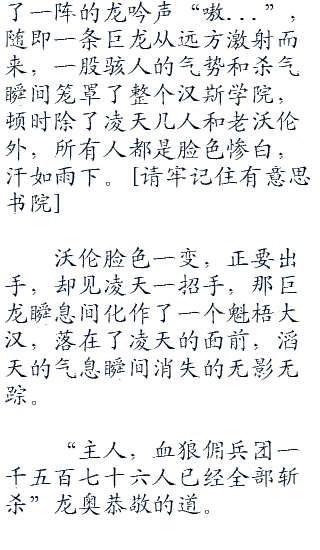 了一阵的龙吟声“嗷...”，
随即一条巨龙从远方激射而
来，一股骇人的气势和杀气
瞬间笼罩了整个汉斯学院，
顿时除了凌天几人和老沃伦
外，所有人都是脸色惨白，
汗如雨下。[请牢记住有意思
书院]
沃伦脸色一变，正要出
手，却见凌天一招手，那巨
龙瞬息间化作了一个魁梧大
汉，落在了凌天的面前，滔
天的气息瞬间消失的无影无
踪。
“主人，血狼佣兵团一
千五百七十六人已经全部斩
杀”龙奥恭敬的道。